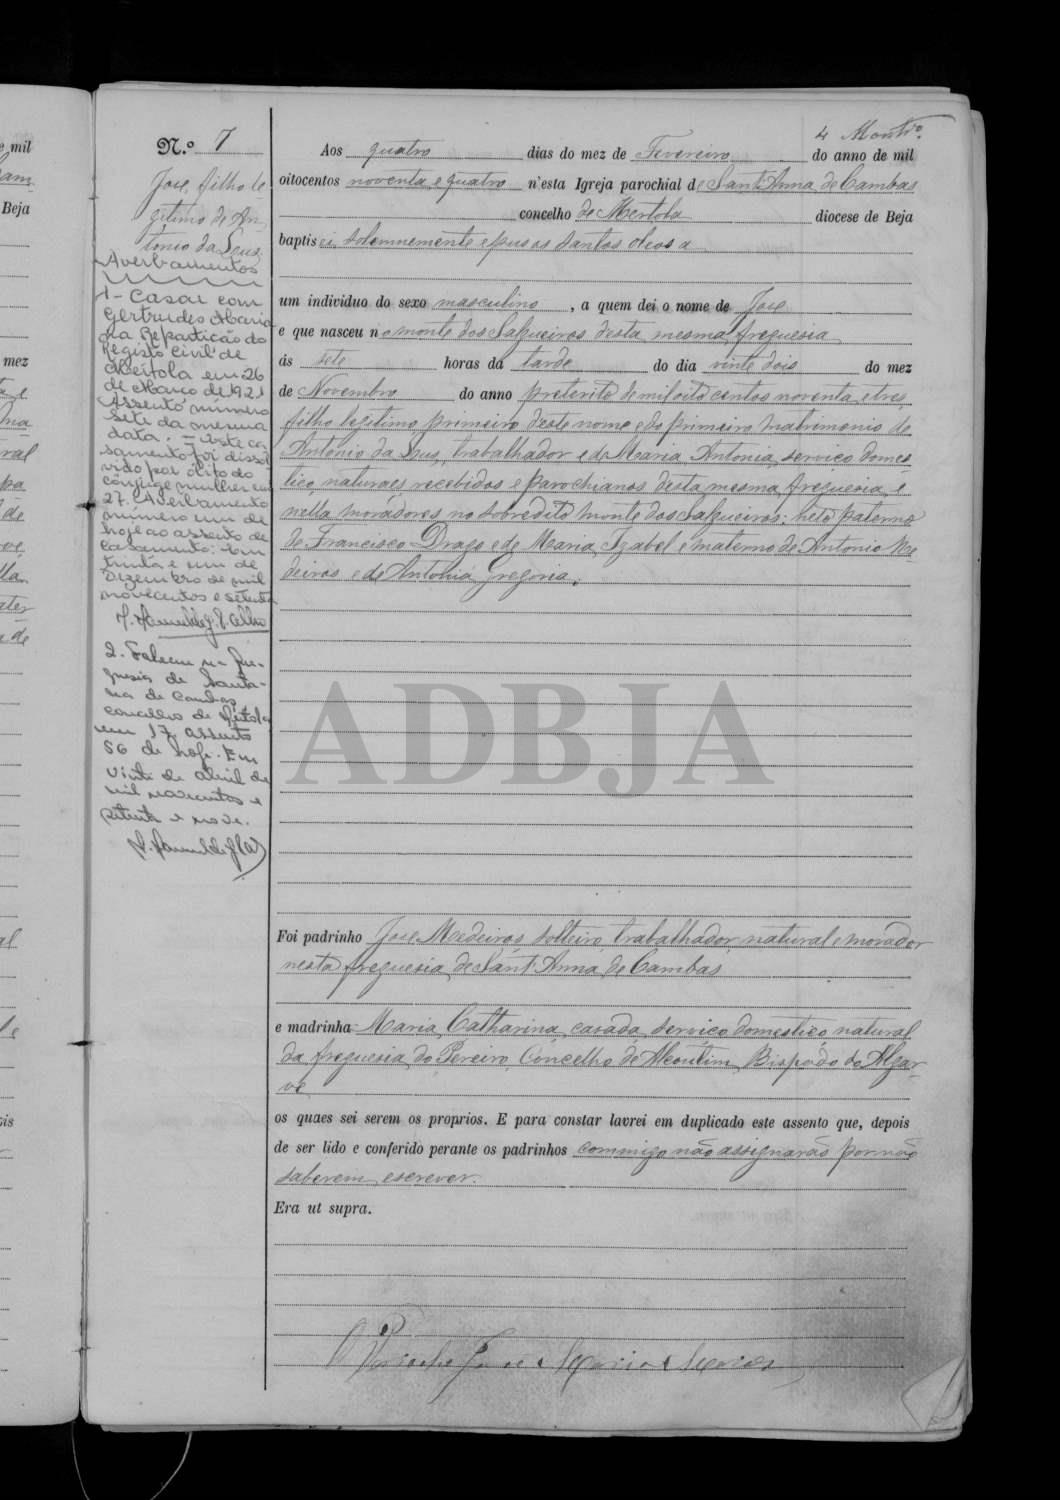 4
N.º 7
José, filho le
gitimo de An
tonio da Luz,
Averbamentos
1- Casou com
Gertrudes Maria
na Repartição do
Registo Civil de
Mértola em 26
de Março de 1921
Assento número
sete da mesma
data. = Este ca
samento foi dissol
vido por óbito do
cônjuge mulher em
27. Averbamento
número um de
hoje ao assento de
casamento: Em
trinta e um de
Dezembro de mil
novecentos e setenta
2. Faleceu na fre-
guesia de Santa-
na de Cambas
concelho de Mértola
em 17, assento
56 de hoje. Em
vinte de abril de
mil novecentos e
setenta e nove.
Aos quatro dias do mez de Fevereiro do anno de mil
oitocentos noventa e quatro n'esta Igreja parochial de Sant'Anna de Cambas
concelho de Mertola diocese de Beja
baptisei solemnemente e puz os santos oleos a
um individuo do sexo masculino, a quem dei o nome de José
e que nasceu no monte dos Salgueiros desta mesma freguesia
ás sete horas da tarde do dia vinte dois do mez
de Novembro do anno preterito de mil oito centos noventa e tres,
filho legitimo primeiro deste nome e do primeiro matrimonio de
Antonio da Luz, trabalhador e de Maria Antonia, serviço domes-
tico, naturaes, recebidos e parochianos desta mesma freguesia, e
nella moradores no sobredito monte dos Salgueiros: neto paterno
de Francisco Drago e de Maria Izabel e materno de Antonio Me-
deiros e de Antonia Gregoria.
ADBJA
Foi padrinho José Medeiros, solteiro, trabalhador, natural e morador
nesta freguesia de Sant'Anna de Cambas
e madrinha Maria Catharina, casada, serviço domestico, natural
da freguesia do Pereiro, Concelho de Alcoutim, Bispado do Algar-
ve
os quaes sei serem os proprios. E para constar lavrei em duplicado este assento que, depois
de ser lido e conferido perante os padrinhos commigo não assignarão por não
saberem escrever.
Era ut supra.
O Parocho